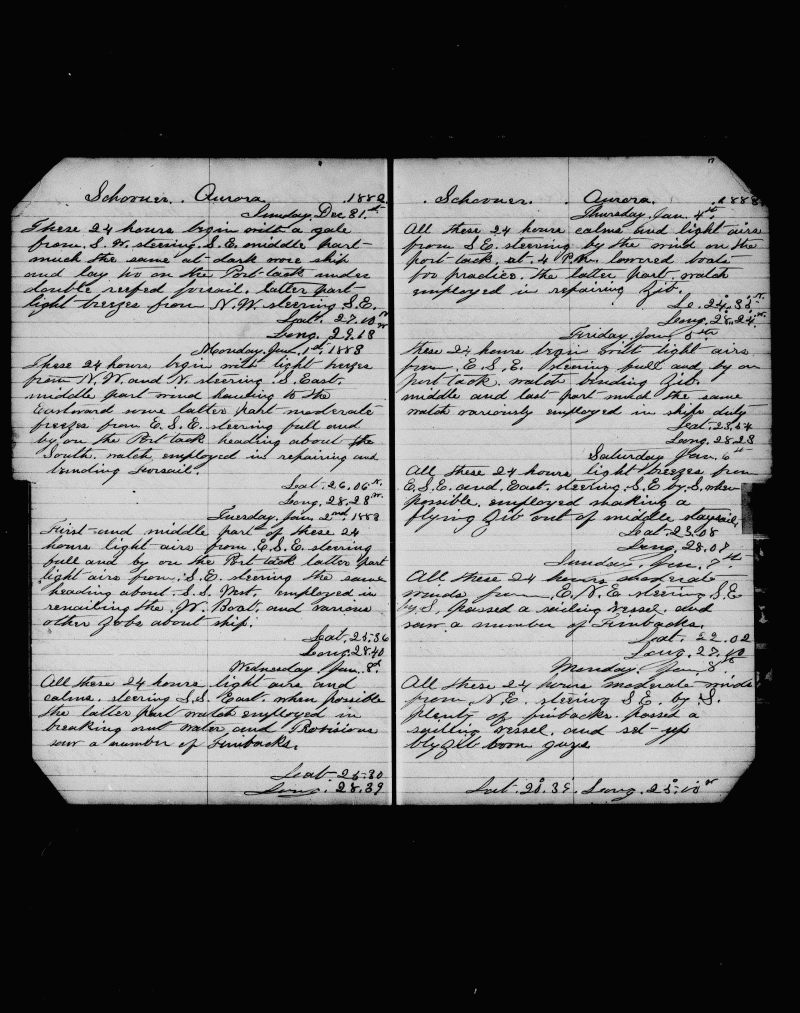 Schooner. Aurora. 1882.
Sunday. Dec 31.st
These 24 hours begin with a gale
from. S. W. steering. S. E. middle part
much the same at dark wore ship
and lay too on the Port tack under
double reefed foresail. latter part
light breezes from N.W. steering S.E.
Lat. 27.10 N
Long. 29.18 W
Monday. Jan. 1st. 1883
These 24 hours begin with light breezes
from N. W. and N. steering S. East.
middle part wind hauling to the
Eastward some latter part moderate
breezes from E. S. E. steering full and
by on the Port tack heading about the
South. watch employed in repairing and
bending foresail.
Lat. 26.06 N.
Long. 28.28 W.
Tuesday. Jan. 2nd. 1883
First and middle part of these 24
hours light airs from. E.S.E. steering
full and by on the Port tack latter part
light airs from. S. E. steering the same
heading about. S.S. West. employed in
renailing the W. Boat. and various
other Jobs about ship.
Lat. 25.36
Long. 28.40
Wednesday. Jan. 3d.
All these 24 hours light airs and
calms. steering S.S. East. when possible
the latter Part watch employed in
breaking out water and Provisions
saw a number of Finbacks.
Lat. 25.30
Long. 28.39
Schooner. Aurora. 1883.
Thursday. Jan. 4th.
All these 24 hours calms and light airs
from S E. steering by the wind on the
port tack. at. 4 P.M. lowered boats
for practice. the latter part, watch
employed in repairing Jib.
La. 24.35 N.
Long. 28.24 W.
Friday. Jan 5th
these 24 hours begin with light airs
from. E. S. E. steering full and by on
port tack. watch bending Jib.
middle and last part much the same
watch variously employed in ship duty
Lat. 23.54
Long. 28.28
Saturday Jan. 6th
All these 24 hours light breezes from
E.S.E. and. East. steering. S.E by. S. when
possible. employed making a
flying Jib out of middle staysail,
Lat. 23.08
Long. 28.07
Sunday. Jan. 7th
All these 24 hours moderate
winds from. E. N. E steering S.E
by, S. passed a sailing vessel. and
saw a number of Finbacks.
Lat. 22.02
Long. 27.10
Monday. Jan 8th
All these 24 hours moderate winds
from N.E. steering S.E. by S.
plenty of finbacks. passed a
sailing vessel. and set-up
Jib boom guys
Lat. 20.39. Long. 25.10 W